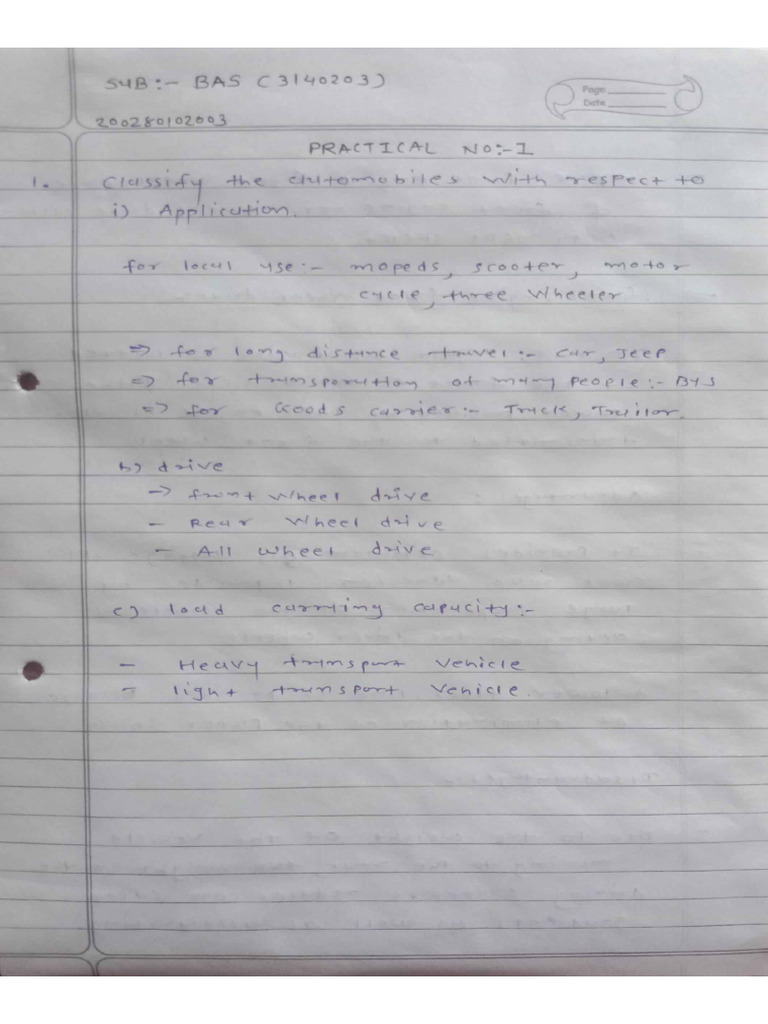 SUB:- BAS (3140203)
Page
Date
200280102003
PRACTICAL NO:-1
1. Classify the automobiles with respect to
i) Application.
for local use:- mopeds, scooter, motor
cycle, three Wheeler
=> for long distance travel:- car, Jeep
=> for transporation of many people:- BUS
=> for Goods carrier:- Truck, Trailor.
b) drive
-> front wheel drive
- Rear Wheel drive
- All wheel drive
c) load carrying capacity:-
- Heavy transport vehicle
- light transport vehicle.